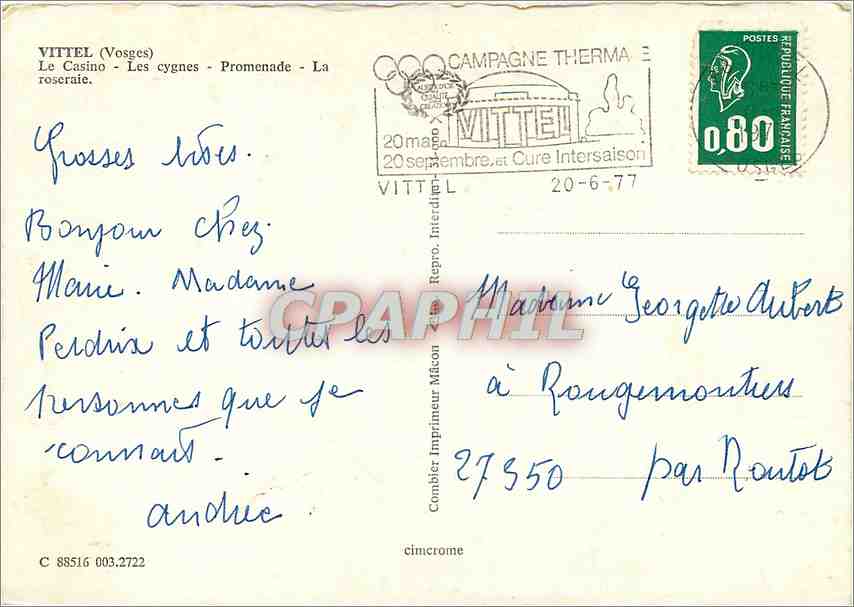 VITTEL (Vosges)
Le Casino - Les cygnes - Promenade - La
roseraie.
CAMPAGNE THERMALE
VITTEL
20 mai
20 septembre, et Cure Intersaison
VITTEL 20-6-77
POSTES
REPUBLIQUE FRANÇAISE
0,80
Grosses bises.
Bonjour chez
Marie. Madame
Perdrix et toutes les
personnes que je
connait.
andrée.
Combier Imprimeur Mâcon Repro. Interdite
CPAPHIL
Madame Georgette Aubert
à Rougemontiers
27350 par Routot
C 88516 003.2722
cimcrome